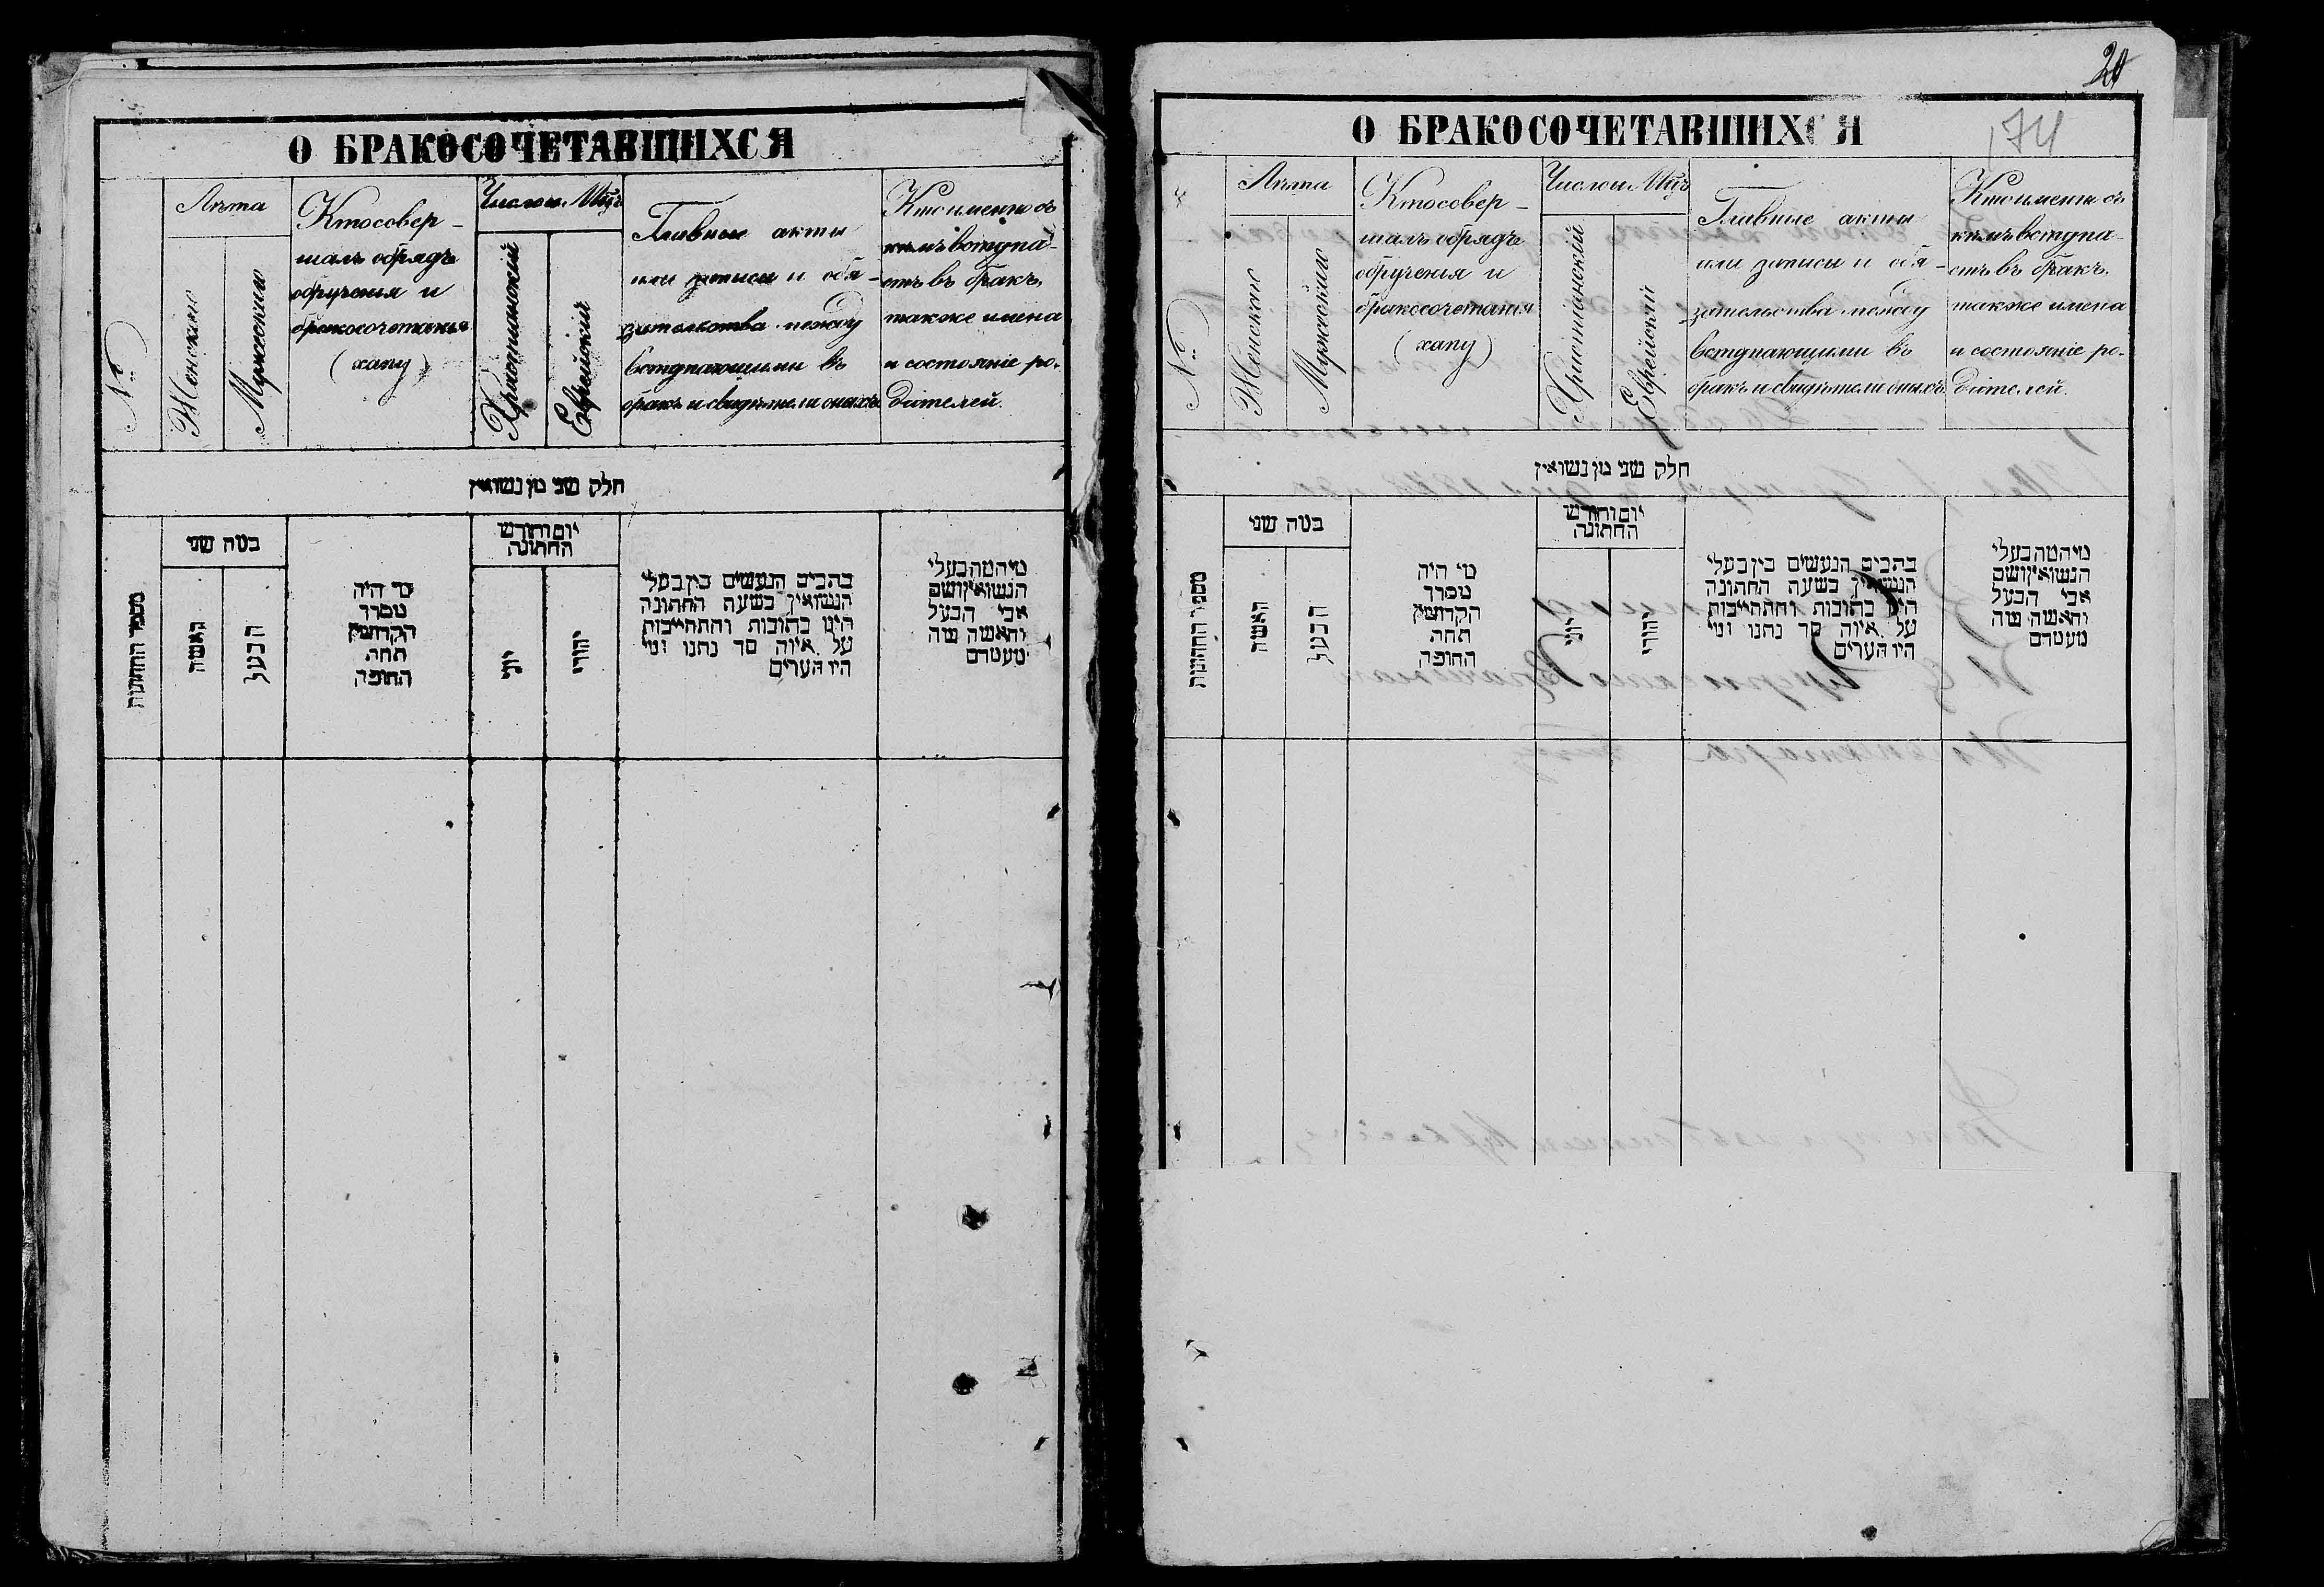 О БРАКОСОЧЕТАВШИХСЯ
№
Лѣта
Женское
Мужескаго
Кто совер-
шалъ обрядъ
обрученія и
бракосочетанія
(хапу)
Число и Мцъ
Христіанскій
Еврейскій
Главные акты
или записи и обя-
зательства между
вступающими въ
бракъ и свидѣтели оныхъ
Кто именно съ
кѣмъ вступа-
етъ въ бракъ,
также имена
и состояніе ро-
дителей.
חלק שני מן נשואין
מספר החתונות
כמה שני
האשה
הבעל
מי היה
מסדר
הקדושין
תחת
החופה
יום וחודש
החתונה
יוני
יהודי
כתבים הנעשים בין בעלי
הנשואין בשעת החתונה
היינו כתובות והתחייבות
על איזה סך נתנו ומי
היו הערים
מי המה בעלי
הנשואין ושם
אבי הבעל
והאשה מה
מעמדם
20
174
О БРАКОСОЧЕТАВШИХСЯ
№
Лѣта
Женское
Мужескаго
Кто совер-
шалъ обрядъ
обрученія и
бракосочетанія
(хапу)
Число и Мцъ
Христіанскій
Еврейскій
Главные акты
или записи и обя-
зательства между
вступающими въ
бракъ и свидѣтели оныхъ
Кто именно съ
кѣмъ вступа-
етъ въ бракъ,
также имена
и состояніе ро-
дителей.
חלק שני מן נשואין
מספר החתונות
כמה שני
האשה
הבעל
מי היה
מסדר
הקדושין
תחת
החופה
יום וחודש
החתונה
יוני
יהודי
כתבים הנעשים בין בעלי
הנשואין בשעת החתונה
היינו כתובות והתחייבות
על איזה סך נתנו ומי
היו הערים
מי המה בעלי
הנשואין ושם
אבי הבעל
והאשה מה
מעמדם